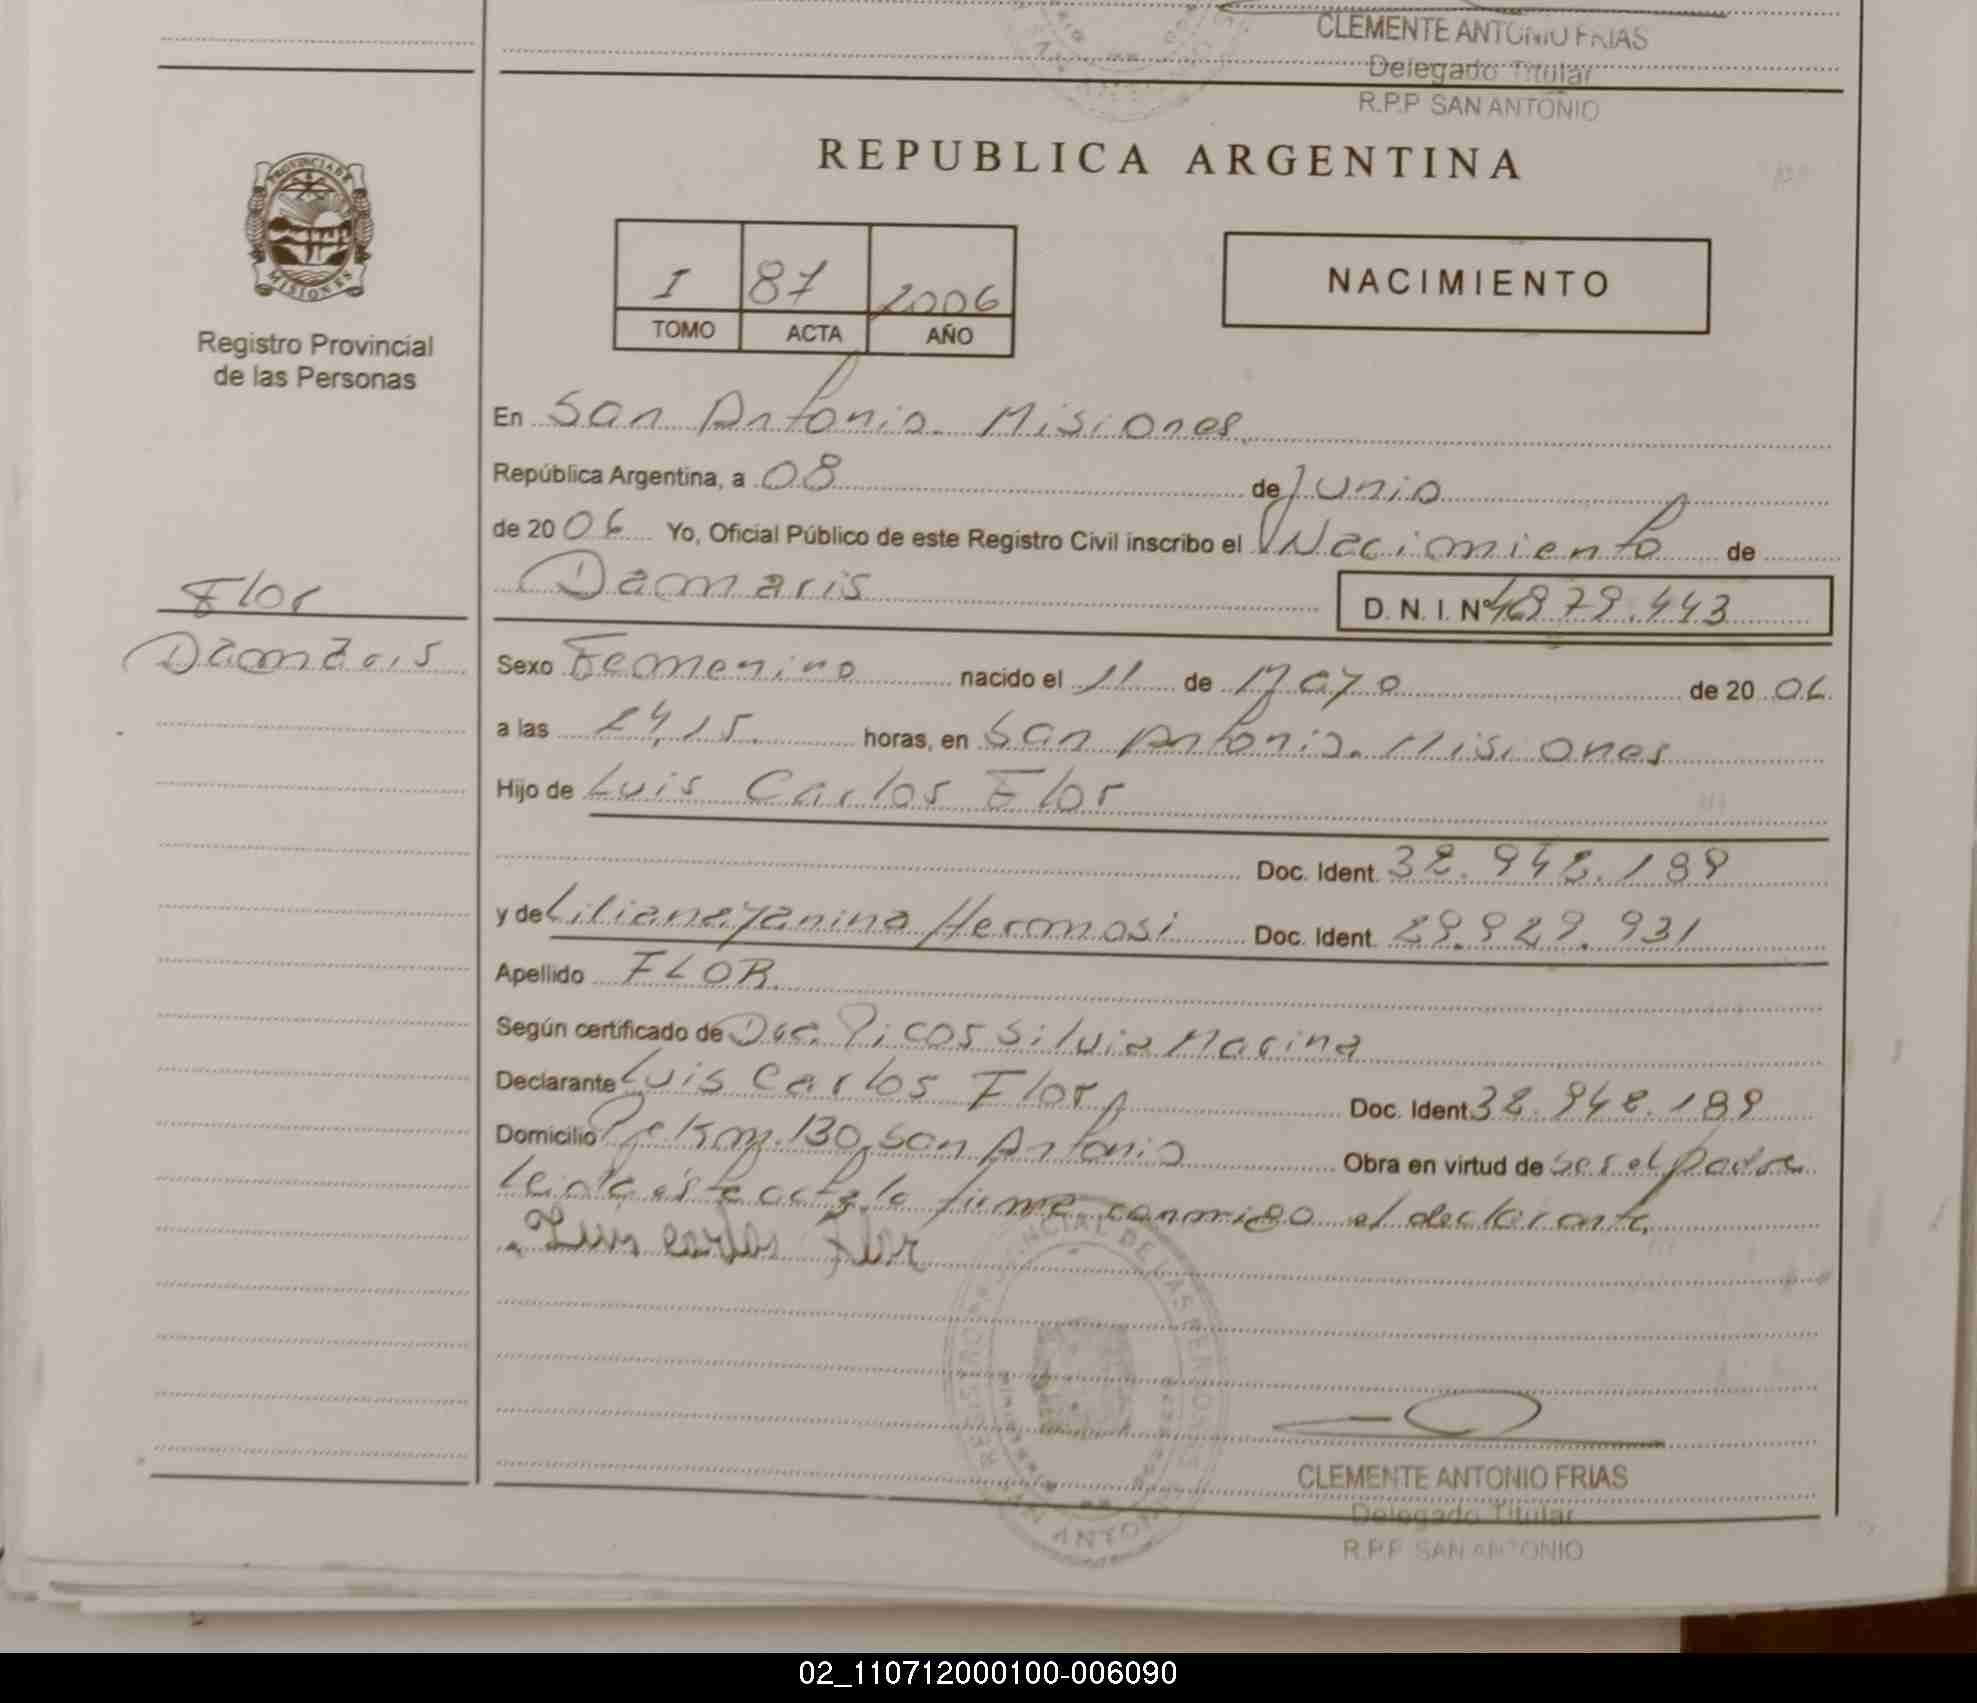 CLEMENTE ANTONIO FRIAS
Delegado Titular
R.P.P SAN ANTONIO
REPUBLICA ARGENTINA
PROVINCIA DE MISIONES
Registro Provincial
de las Personas
I 87 2006
TOMO ACTA AÑO
NACIMIENTO
En San Antonio - Misiones
República Argentina, a 08 de Junio
de 20 06 Yo, Oficial Público de este Registro Civil inscribo el Nacimiento de
Damaris D. N. I. Nº
Flor
Damaris
Sexo Femenino nacido el 11 de Mayo de 20 06
a las horas, en San Antonio - Misiones
Hijo de Luis Carlos Flor
Doc. Ident.
y de Liliana Yanina Hermosi Doc. Ident. 29.929.931
Apellido FLOR
Según certificado de Dra. Picos Silvia Marina
Declarante Luis Carlos Flor Doc. Ident.
Domicilio Km. 130 San Antonio Obra en virtud de ser el padre
Leida este acta la firma conmigo el declarante.
Luis carlos Flor
CLEMENTE ANTONIO FRIAS
Delegado Titular
R.P.P SAN ANTONIO
02_110712000100-006090